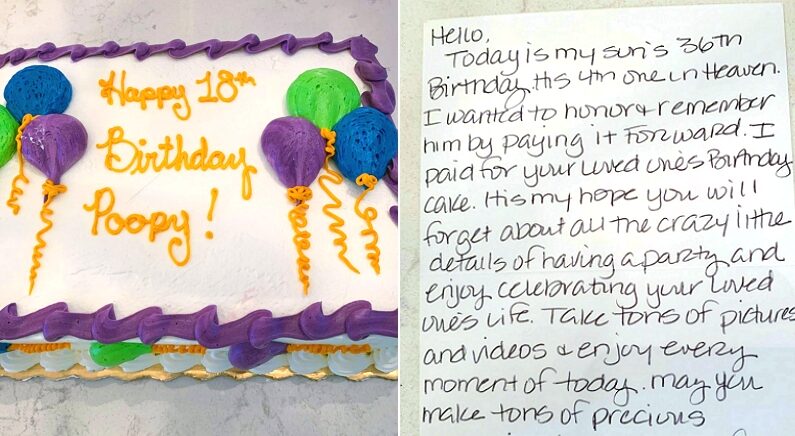 Happy 18th
Birthday
Poopy!
Hello,
Today is my sun's 36th
Birthday. His 4th one in Heaven.
I wanted to honor & remember
him by paying it Forward. I
paid for your loved one's Birthday
cake. It is my hope you will
forget about all the crazy little
details of having a party and
enjoy celebrating your loved
one's life. Take tons of pictures
and videos & enjoy every
moment of today. may you
make tons of precious